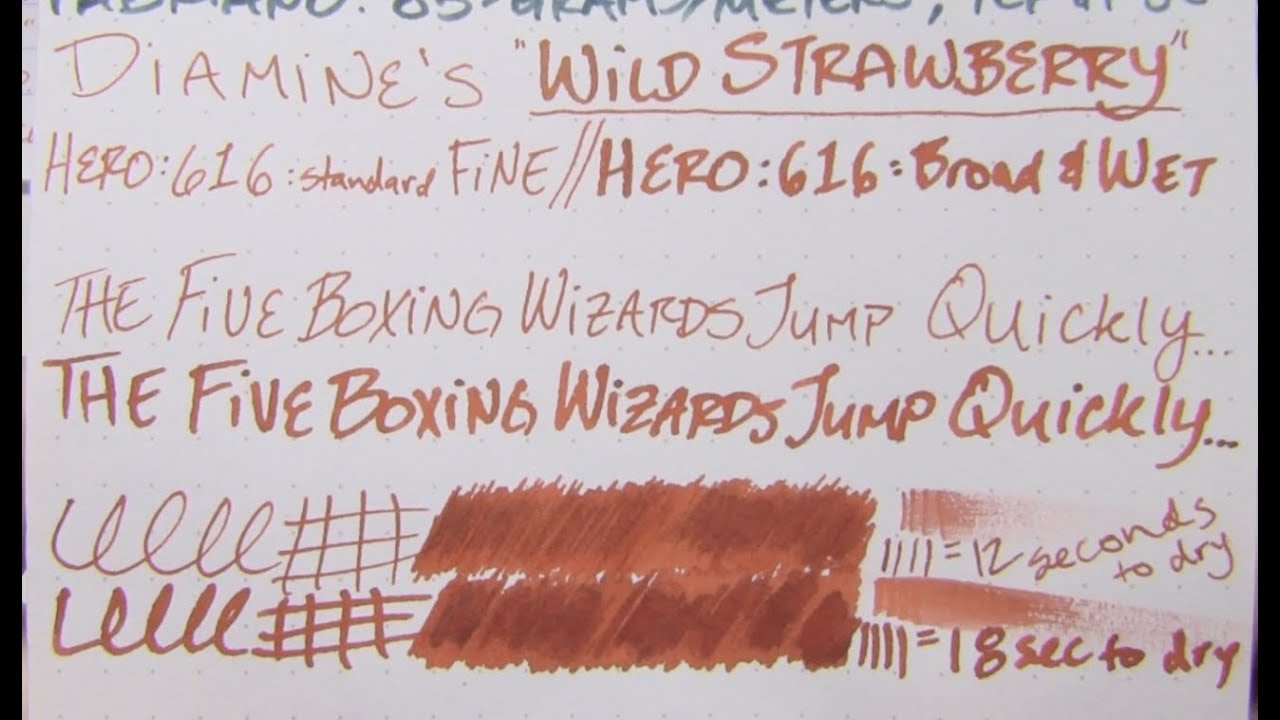 FABRIANO: 85-GRAMS/METERS,
DiAMiNE's "WiLD STRAWBERRY"
HERO:616:standard FiNE//HERO:616:Broad & WET
THE FiVE BOXiNG WiZARDS JUMP QuickLy...
THE FiVE BOXiNG WiZARDS JuMP QuickLy...
= 12 seconds
to dry
= 18 sec to dry